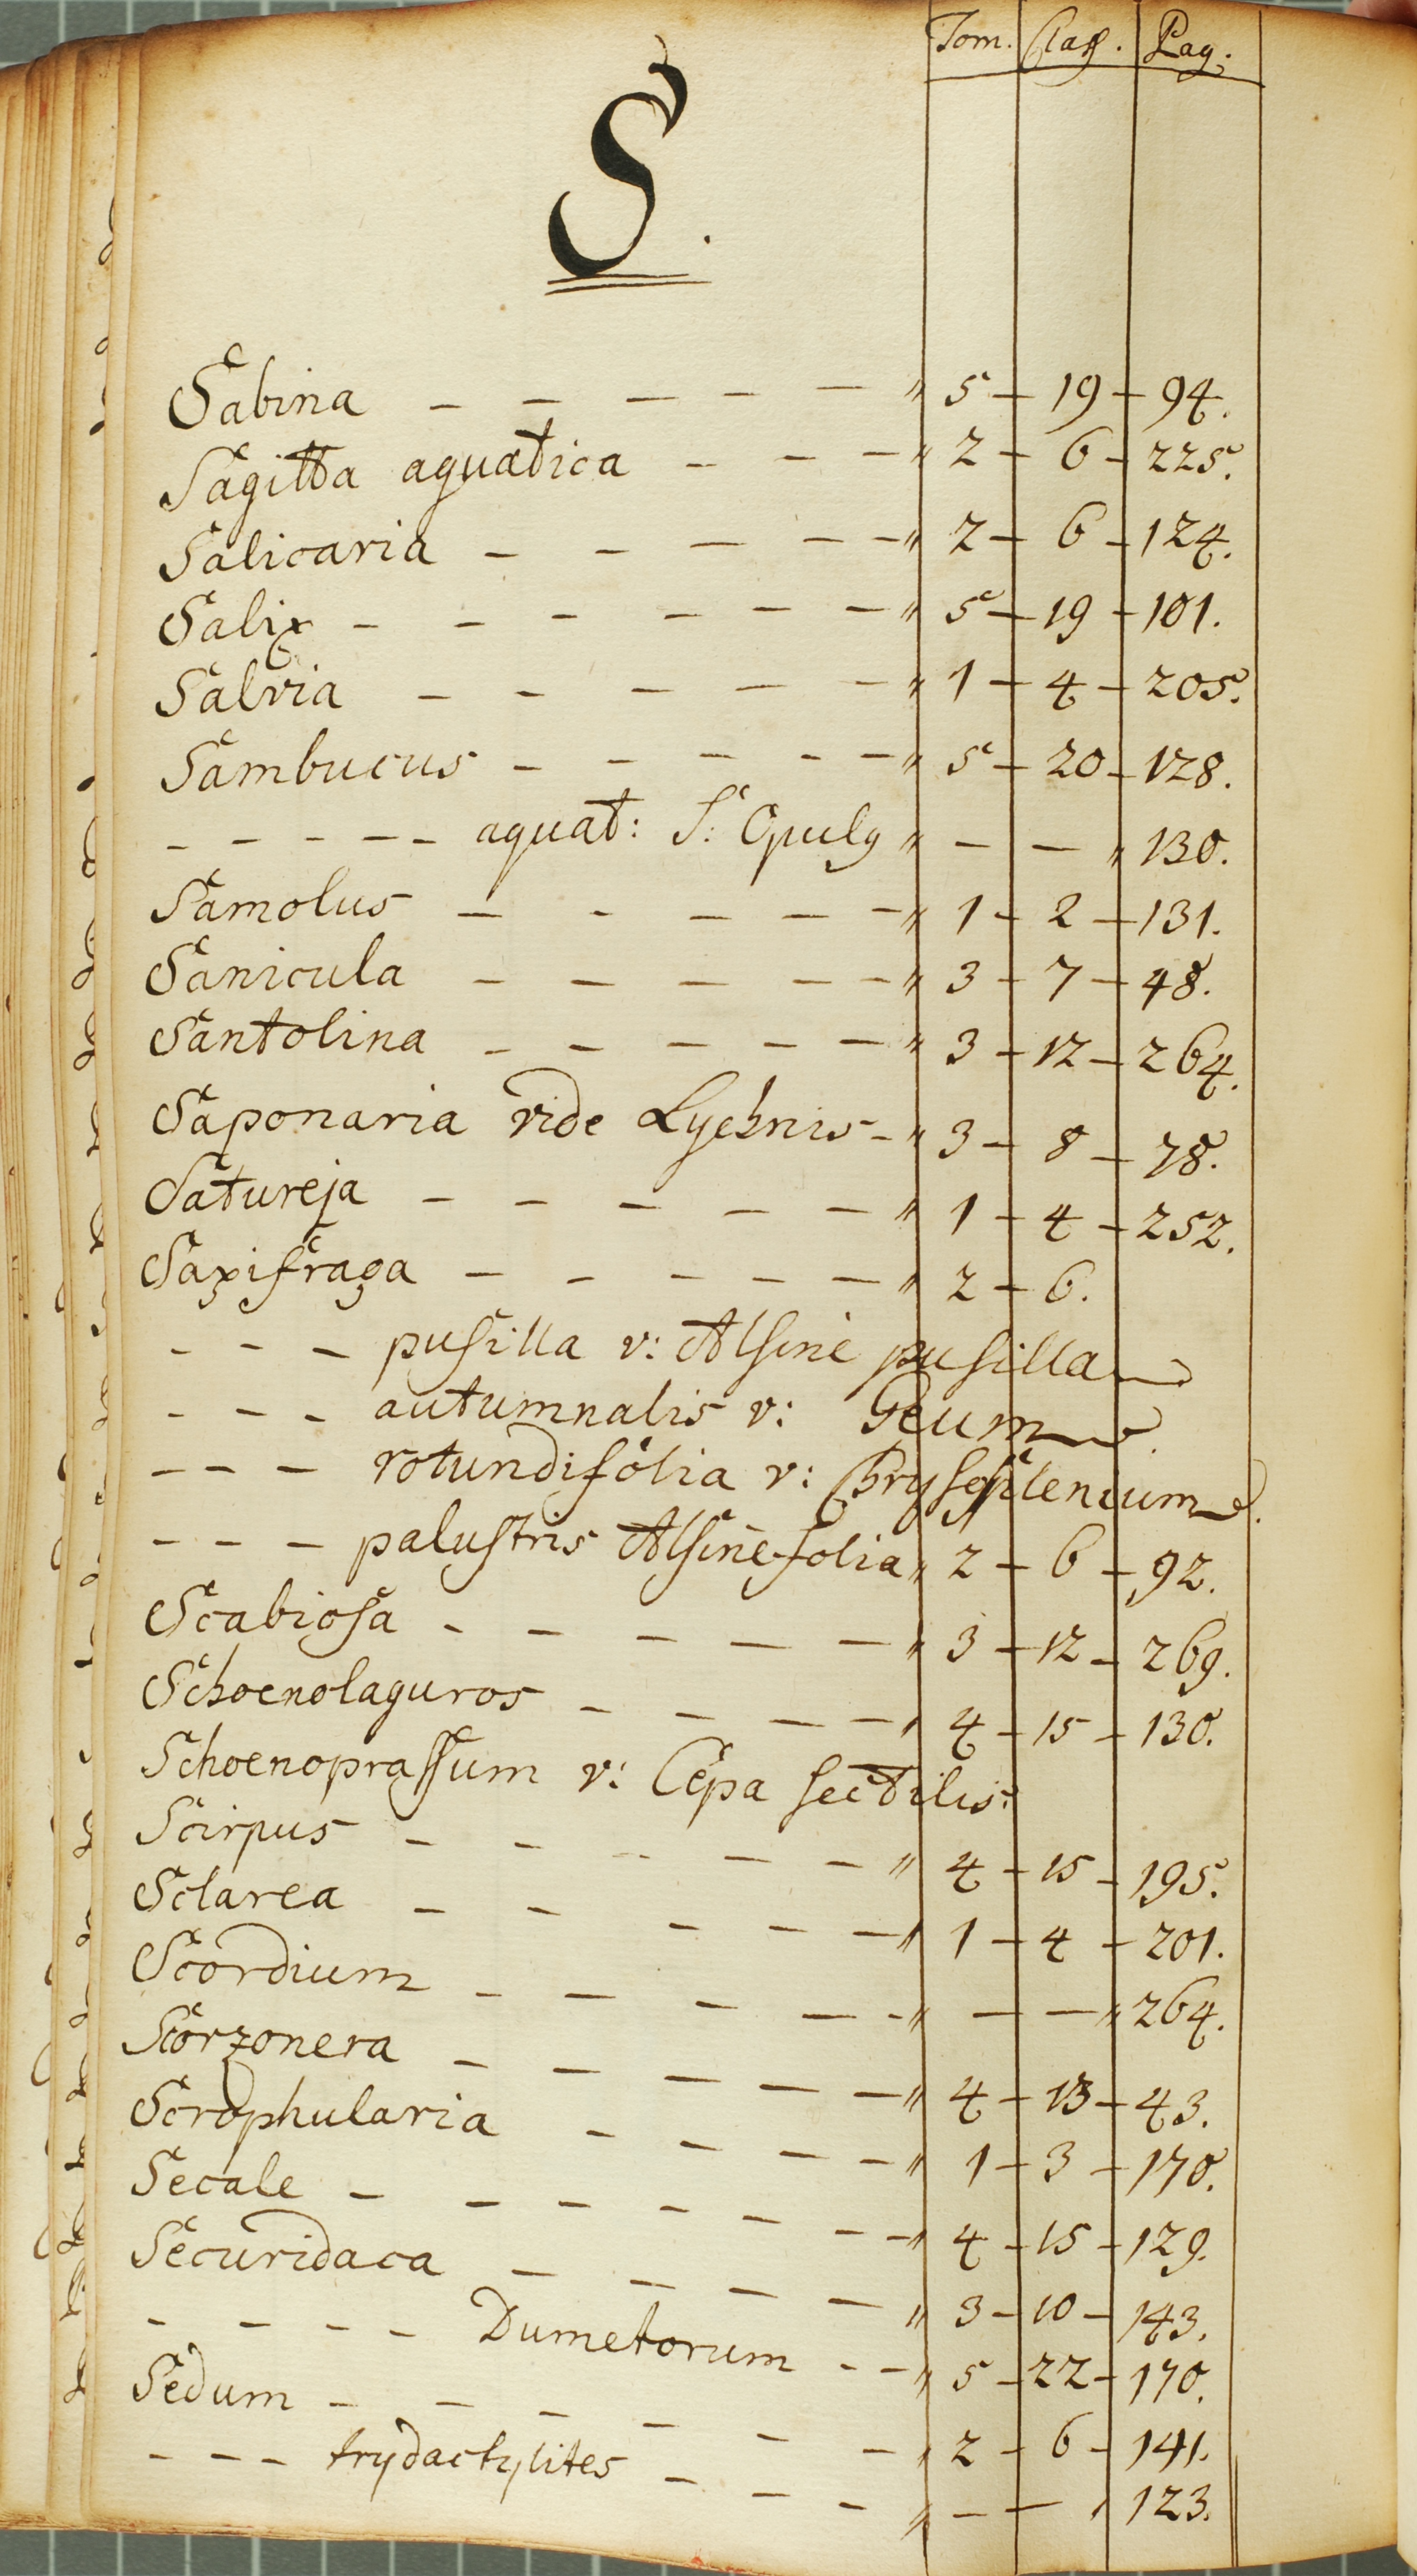 Tom. Claß. Pag:
S.
Sabina — — — — — " 5 — 19 — 94.
Sagitta aquatica — — — " 2 — 6 — 225.
Salicaria — — — — — " 2 — 6 — 124.
Salix — — — — — — " 5 — 19 — 101.
Salvia — — — — — " 1 — 4 — 205.
Sambucus — — — — — " 5 — 20 — 128.
— — — — — aquat: S: Opulg " — — " 130.
Samolus — — — — — " 1 — 2 — 131.
Sanicula — — — — — " 3 — 7 — 48.
Santolina — — — — — " 3 — 12 — 264.
Saponaria vide Lychnis — " 3 — 8 — 78.
Satureja — — — — — " 1 — 4 — 252.
Saxifraga — — — — — " 2 — 6.
— — — pusilla v: Alsine pusilla
— — — autumnalis v: Geum
— — — rotundifolia v: Crysosplenium
— — — palustris Alsinefolia " 2 — 6 — 92.
Scabiosa — — — — — " 3 — 12 — 269.
Schoenolaguros — — — — " 4 — 15 — 130.
Schoenoprassum v: Cepa sectilis.
Scirpus — — — — — " 4 — 15 — 195.
Sclarea — — — — — " 1 — 4 — 201.
Scordium — — — — — " — — " 264.
Scorzonera — — — — — " 4 — 13 — 43.
Scrophularia — — — — " 1 — 3 — 170.
Secale — — — — — — — " 4 — 15 — 129.
Securidaca — — — — " 3 — 10 — 143.
— — — — Dumetorum — — " 5 — 22 — 170.
Sedum — — — — — — " 2 — 6 — 141.
— — — trydactylites — — — " — — " 123.